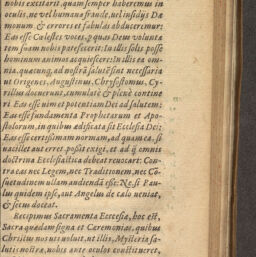 nobis excitarit, quam semper haberemus in
oculis, ne vel humana fraude, vel insidijs Dæ
monum & errores et fabulas abduceremur:
Eas esse Cælestes voces, p quas Deus volunta
tem suam nobis patefecerit: In illis solis posse
hominum animos acquiescere: In illis ea om-
nia, quæcunq, ad nostrã salutẽ sint necessaria
ut Origenes, Augustinus, Chrysostomus, Cy-
rillus docuerunt, cumulatè & plenè contine
ri Eas esse uim et potentiam Dei ad salutem:
Eas esse fundamenta Prophetarum et Apo
stolorum, in quibus ædificata sit Ecclesia Dei:
Eas esse certissimam normam, ad quam ea, si
vacillet aut erret, possit exigi, et ad q̃ omnis
doctrina Ecclesiastica debeat reuocari: Con-
tra eas nec Legem, nec Traditionem, nec Cõ-
suetudinem ullam audiendã esse: Ne, si Pau-
lus quidem ipse, aut Angelus de cælo ueniat,
& secus doceat.
Recipimus Sacramenta Ecclesiæ, hoc est,
Sacra quædam signa et Ceremonias, quibus
Christus nos uti uoluit, ut illis, Mysteria sa-
lutis nostræ, nobis ante oculos constitueret,